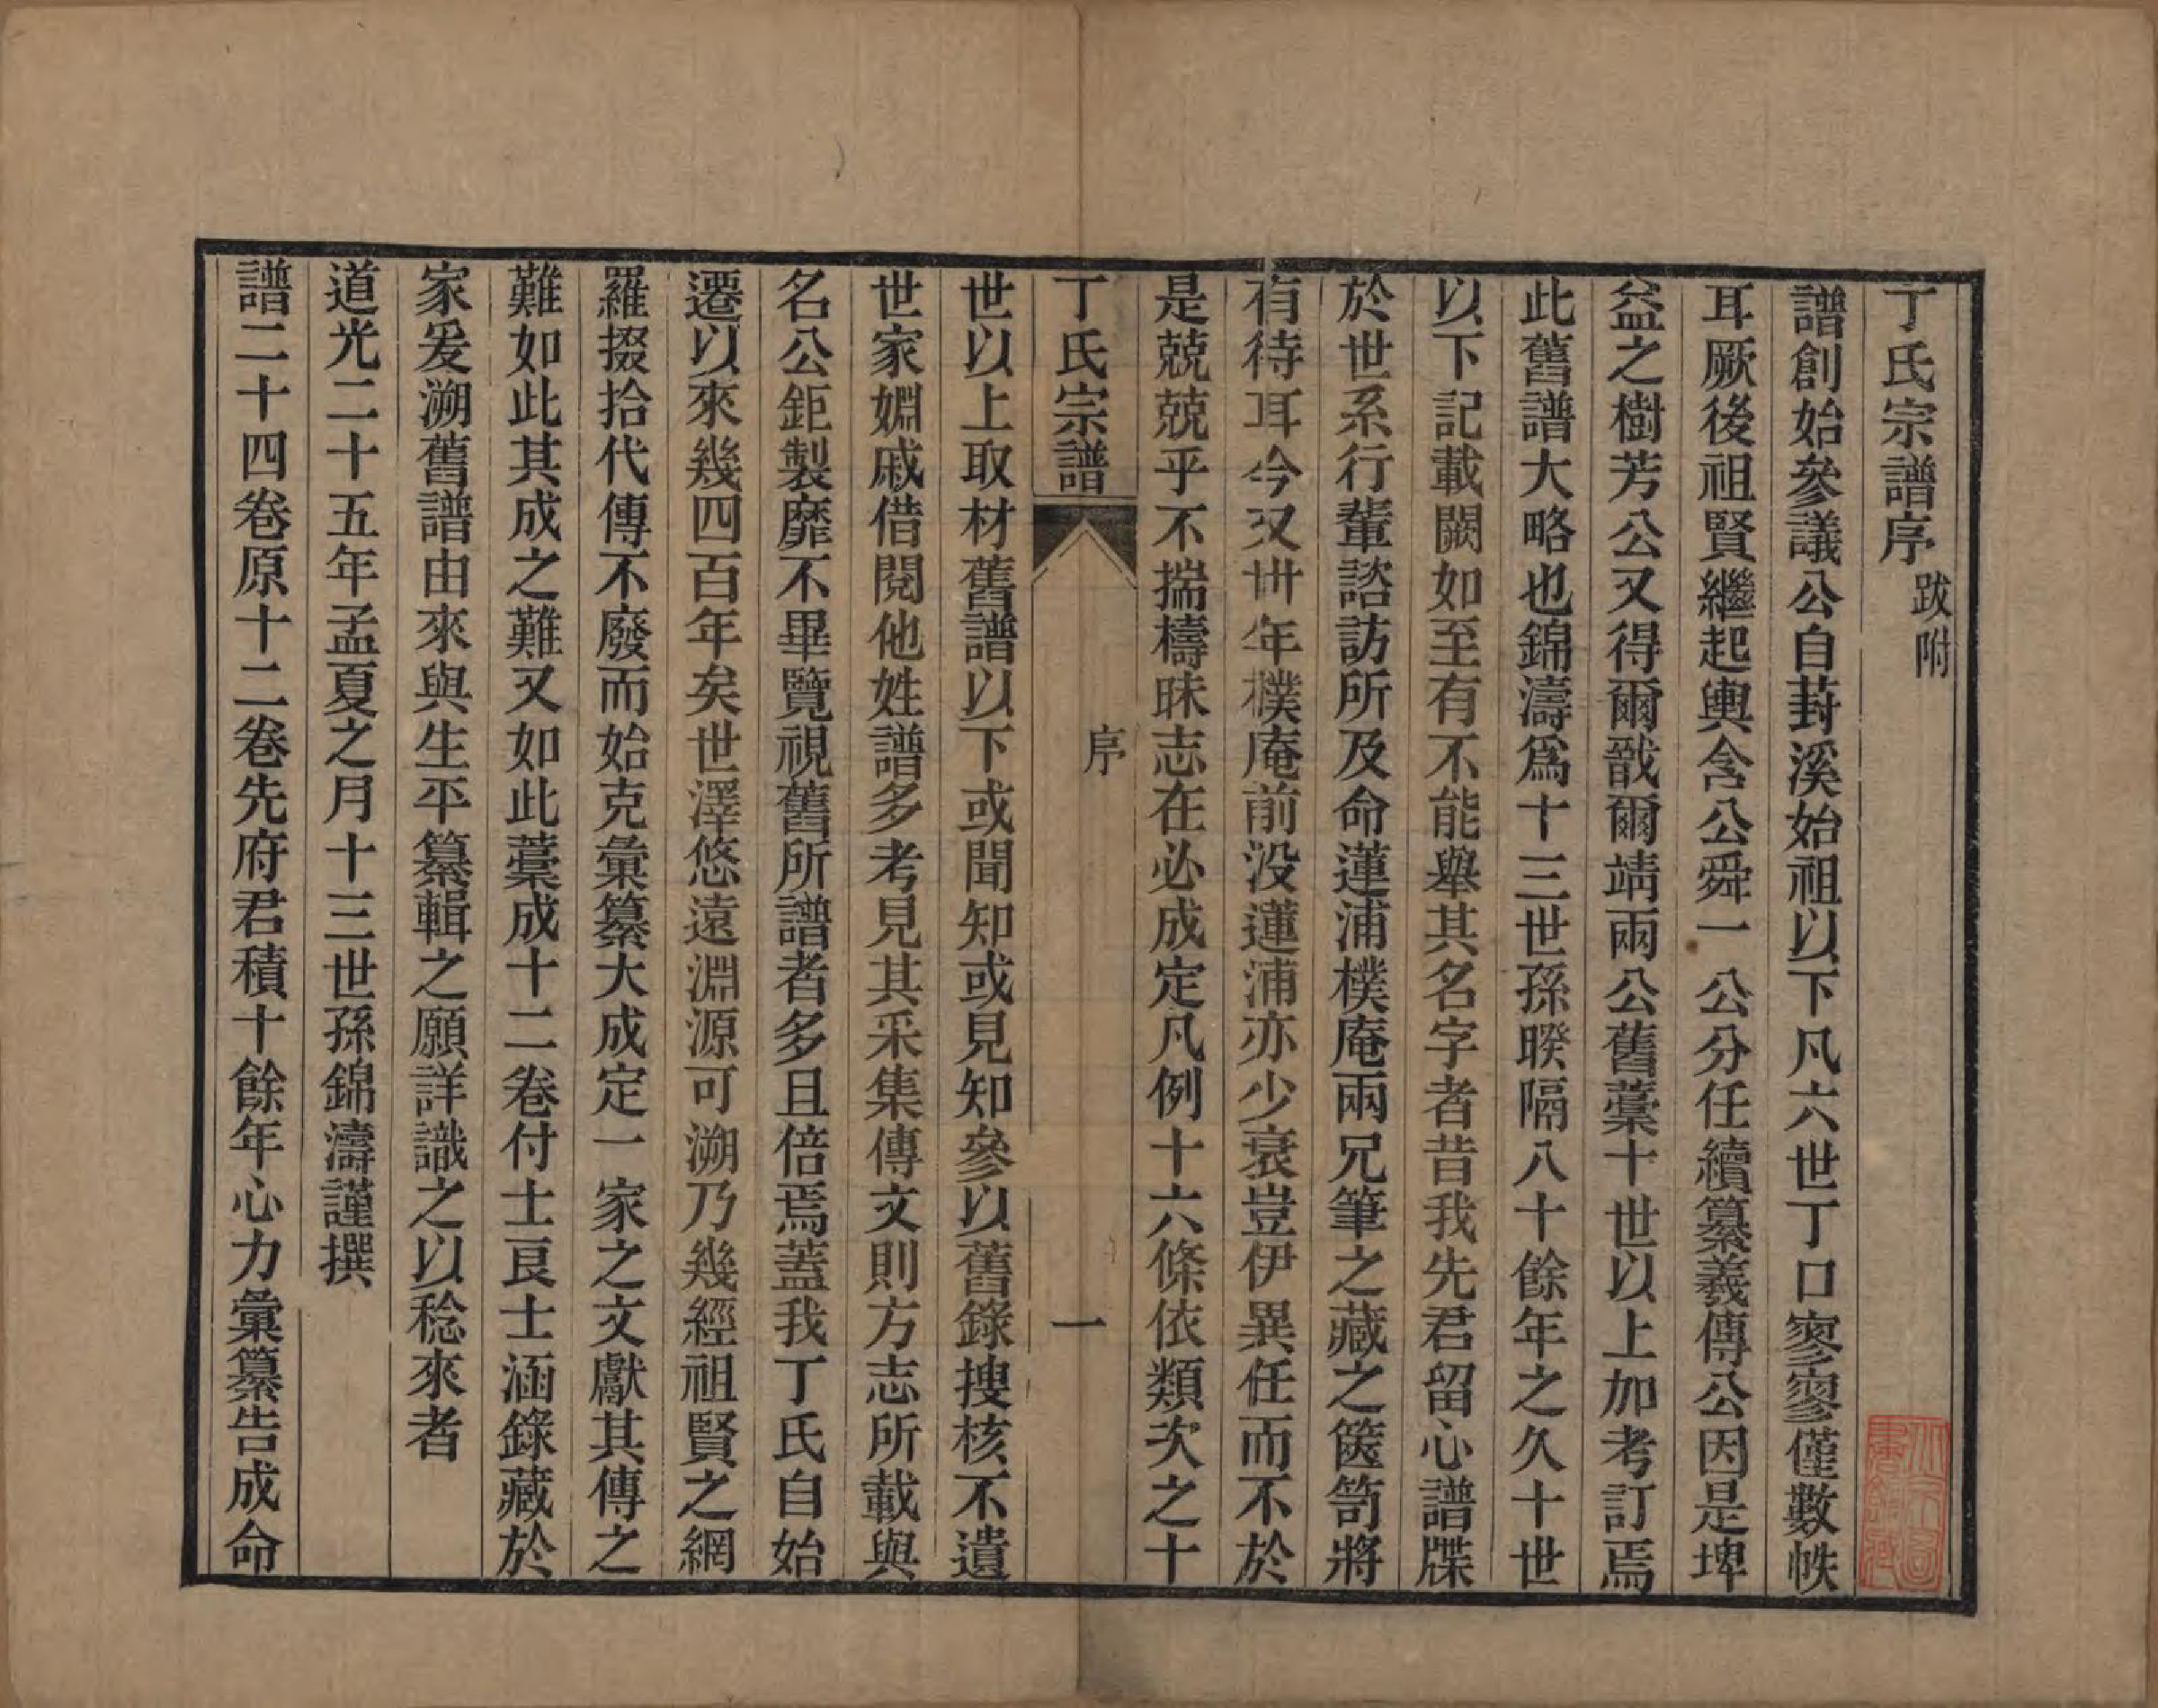 丁氏宗譜序 跋附
譜創始參議公自葑溪始祖以下凡六世丁口寥寥僅數帙
耳厥後祖賢繼起輿含公舜一公分任續纂羲傳公因是埤
益之樹芳公又得爾戩爾靖兩公舊藁十世以上加考訂焉
此舊譜大略也錦濤爲十三世孫暌隔八十餘年之久十世
以下記載闕如至有不能舉其名字者昔我先君留心譜牒
於世系行輩諮訪所及命蓮浦樸庵兩兄筆之藏之篋笥將
有待耳今又卅年樸庵前没蓮浦亦少衰豈伊異任而不於
是兢兢乎不揣檮昧志在必成定凡例十六條依類次之十
丁氏宗譜
序
一
世以上取材舊譜以下或聞知或見知參以舊錄搜核不遺
世家婣戚借閱他姓譜多考見其采集傳文則方志所載與
名公鉅製靡不畢覽視舊所譜者多且倍焉蓋我丁氏自始
遷以來幾四百年矣世澤悠遠淵源可溯乃幾經祖賢之網
羅掇拾代傳不廢而始克彙纂大成定一家之文獻其傳之
難如此其成之難又如此藁成十二卷付士良士涵錄藏於
家爰溯舊譜由來與生平纂輯之願詳識之以稔來者
道光二十五年孟夏之月十三世孫錦濤謹撰
譜二十四卷原十二卷先府君積十餘年心力彙纂告成命